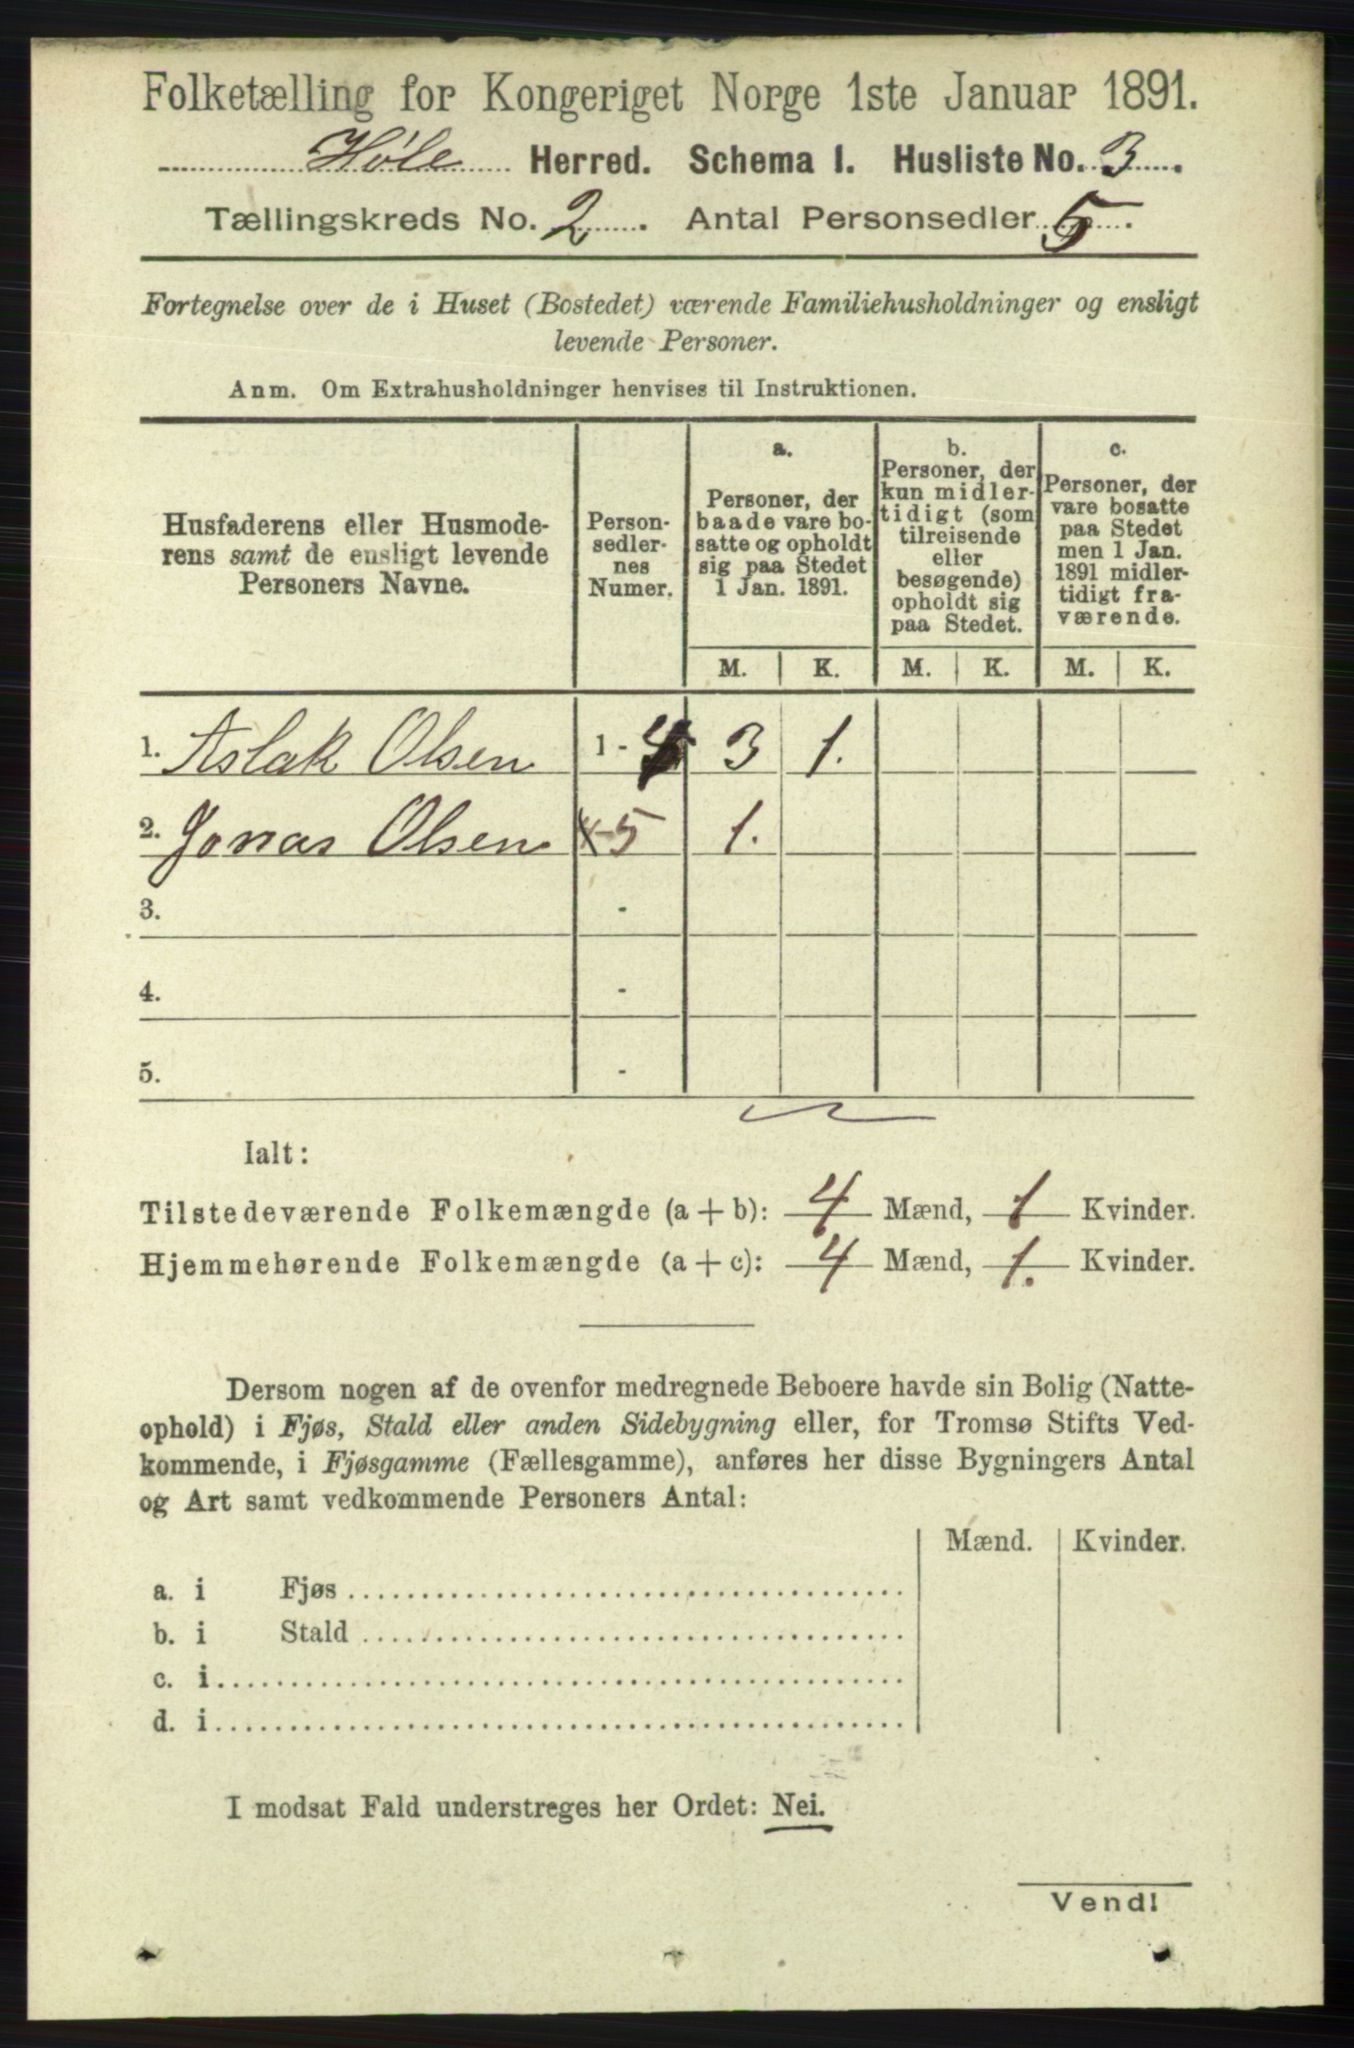 Folketælling for Kongeriget Norge 1ste Januar 1891.
Høle Herred. Schema I. Husliste No. 3.
Tællingskreds No. 2. Antal Personsedler 5.
Fortegnelse over de i Huset (Bostedet) værende Familiehusholdninger og ensligt
levende Personer.
Anm. Om Extrahusholdninger henvises til Instruktionen.
Husfaderens eller Husmode-
rens samt de ensligt levende
Personers Navne.
Person-
sedler-
nes
Numer.
a.
Personer, der
baade vare bo-
satte og opholdt
sig paa Stedet
1 Jan. 1891.
b.
Personer, der
kun midler-
tidigt (som
tilreisende
eller
besøgende)
opholdt sig
paa Stedet.
c.
Personer, der
vare bosatte
paa Stedet
men 1 Jan.
1891 midler-
tidigt fra-
værende.
M. K. M. K. M. K.
1. Aslak Olsen 1 - 4 3 1.
2. Jonas Olsen - 5 1.
3. -
4. -
5. -
Ialt:
Tilstedeværende Folkemængde (a + b): 4 Mænd, 1 Kvinder.
Hjemmehørende Folkemængde (a + c): 4 Mænd, 1. Kvinder.
Dersom nogen af de ovenfor medregnede Beboere havde sin Bolig (Natte-
ophold) i Fjøs, Stald eller anden Sidebygning eller, for Tromsø Stifts Ved-
kommende, i Fjøsgamme (Fællesgamme), anføres her disse Bygningers Antal
og Art samt vedkommende Personers Antal:
Mænd. Kvinder.
a. i Fjøs
b. i Stald
c. i
d. i
I modsat Fald understreges her Ordet: Nei.
Vend!